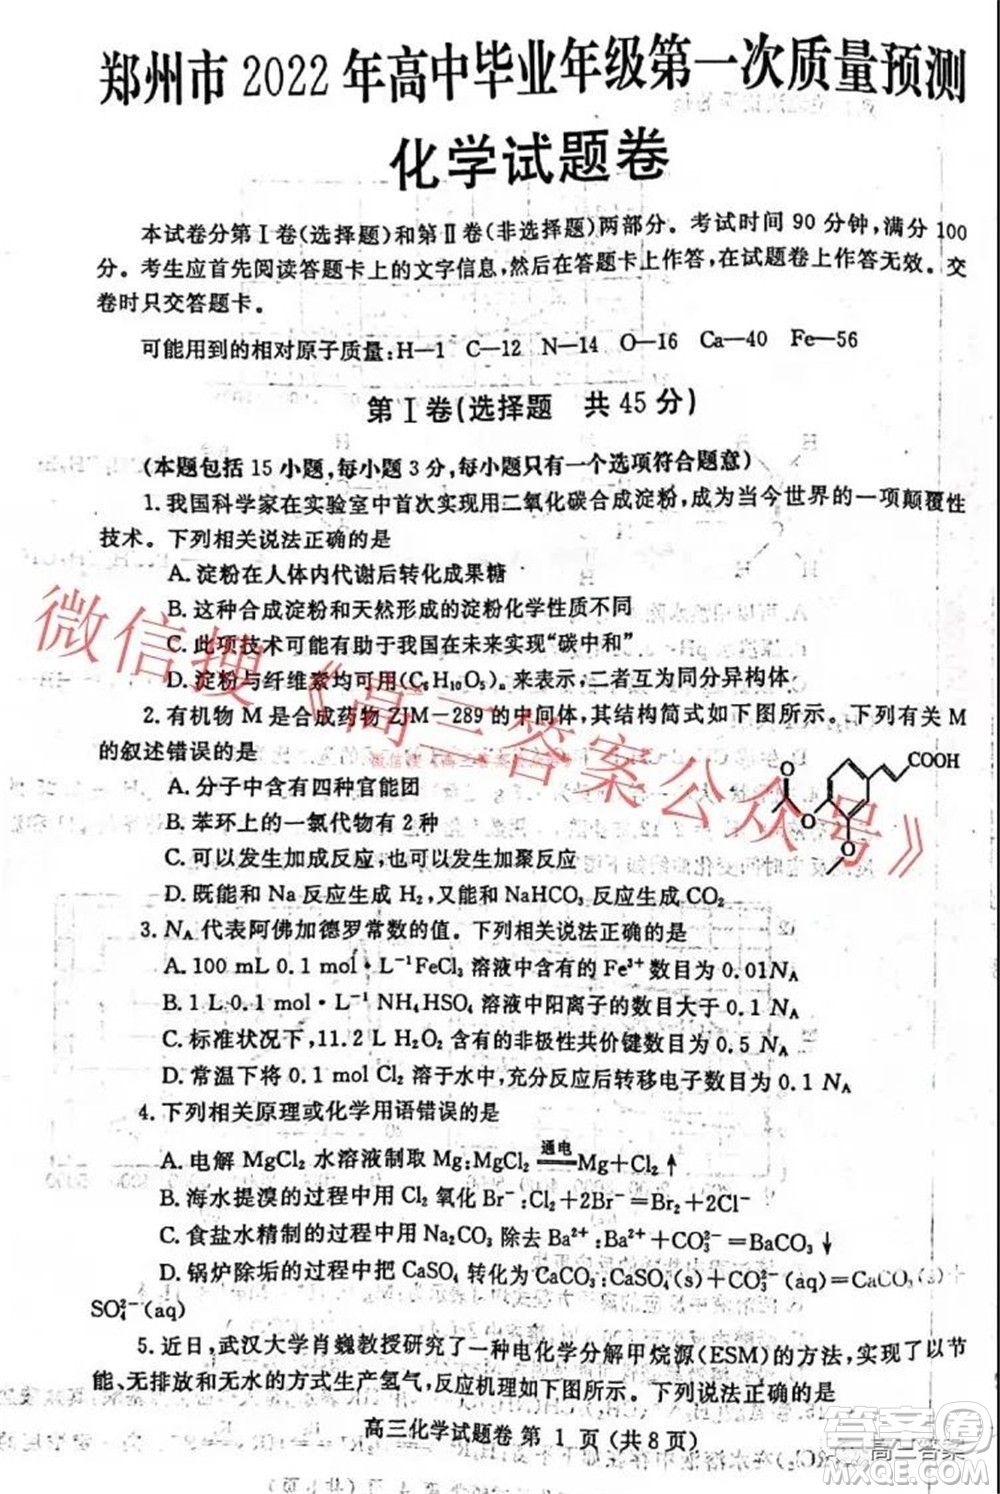 郑州市 2022 年高中毕业年级第一次质量预测
化学试题卷
本试卷分第Ⅰ卷(选择题)和第Ⅱ卷(非选择题)两部分。考试时间 90 分钟,满分 100
分。考生应首先阅读答题卡上的文字信息,然后在答题卡上作答,在试题卷上作答无效。交
卷时只交答题卡。
可能用到的相对原子质量:H—1 C—12 N—14 O—16 Ca—40 Fe—56
第Ⅰ卷(选择题 共 45 分)
(本题包括 15 小题,每小题 3 分,每小题只有一个选项符合题意)
1. 我国科学家在实验室中首次实现用二氧化碳合成淀粉,成为当今世界的一项颠覆性
技术。下列相关说法正确的是
A. 淀粉在人体内代谢后转化成果糖
B. 这种合成淀粉和天然形成的淀粉化学性质不同
C. 此项技术可能有助于我国在未来实现“碳中和”
D. 淀粉与纤维素均可用(C₆H₁₀O₅)ₙ 来表示,二者互为同分异构体
2. 有机物 M 是合成药物 ZJM-289 的中间体,其结构简式如下图所示。下列有关 M
的叙述错误的是
A. 分子中含有四种官能团
B. 苯环上的一氯代物有 2 种
C. 可以发生加成反应,也可以发生加聚反应
D. 既能和 Na 反应生成 H₂,又能和 NaHCO₃ 反应生成 CO₂
COOH
O
O
O
3. N_A 代表阿佛加德罗常数的值。下列相关说法正确的是
A. 100 mL 0.1 mol·L⁻¹FeCl₃ 溶液中含有的 Fe³⁺数目为 0.01N_A
B. 1 L 0.1 mol·L⁻¹ NH₄HSO₄ 溶液中阳离子的数目大于 0.2 N_A
C. 标准状况下,11.2 L H₂O₂ 含有的非极性共价键数目为 0.5 N_A
D. 常温下将 0.1 mol Cl₂ 溶于水中,充分反应后转移电子数目为 0.1 N_A
4. 下列相关原理或化学用语错误的是
A. 电解 MgCl₂ 水溶液制取 Mg:MgCl₂ 通电══Mg+Cl₂↑
B. 海水提溴的过程中用 Cl₂ 氧化 Br⁻:Cl₂+2Br⁻══Br₂+2Cl⁻
C. 食盐水精制的过程中用 Na₂CO₃ 除去 Ba²⁺:Ba²⁺+CO₃²⁻══BaCO₃↓
D. 锅炉除垢的过程中把 CaSO₄ 转化为 CaCO₃:CaSO₄(s)+CO₃²⁻(aq)══CaCO₃(s)+
SO₄²⁻(aq)
5. 近日,武汉大学肖巍教授研究了一种电化学分解甲烷源(ESM)的方法,实现了以节
能、无排放和无水的方式生产氢气,反应机理如下图所示。下列说法正确的是
高三化学试题卷 第 1 页 (共 8 页)
微信搜《高三答案公众号》
答案圈
MXQE.COM
高三答案